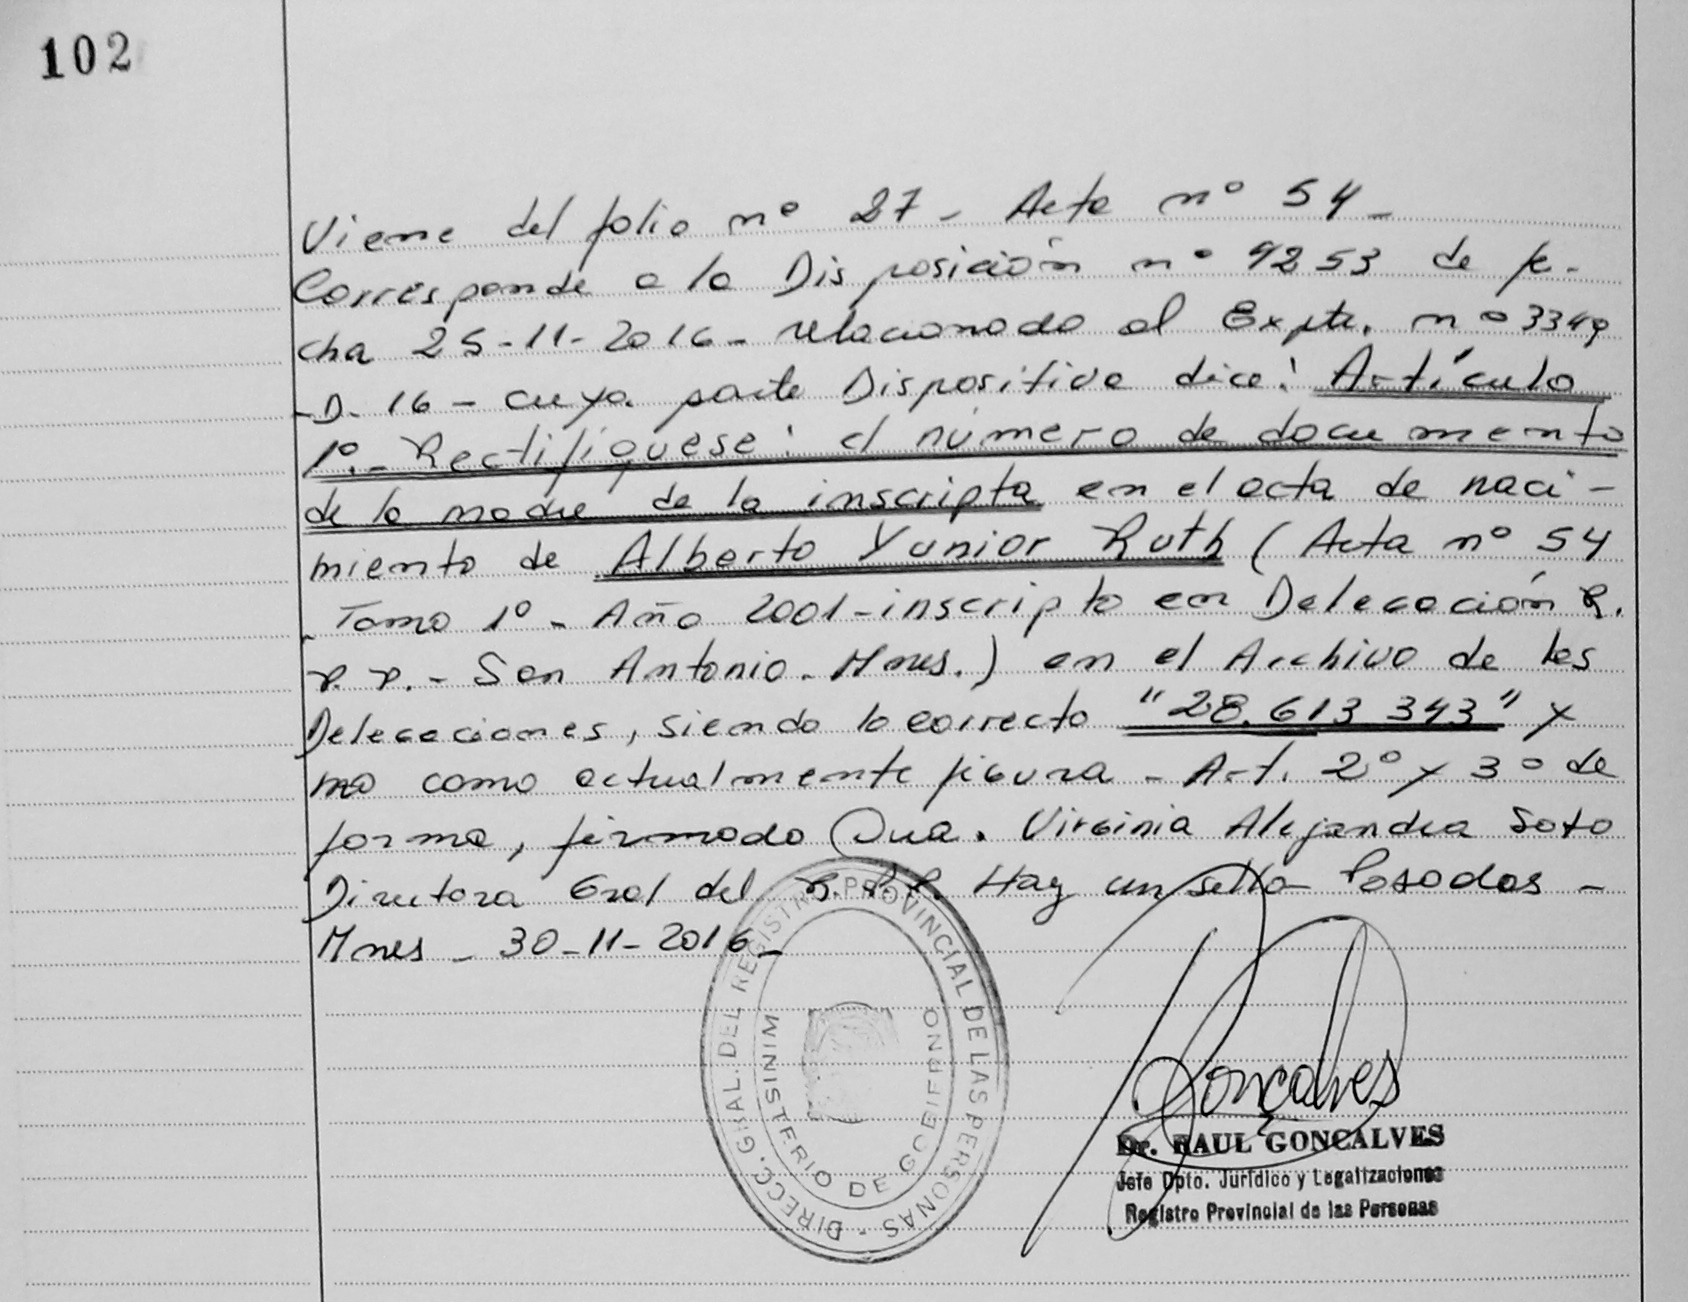 102
Viene del folio nº 27 - Acta nº 54 -
Corresponde a la Disposición nº 4253 de fe-
cha 25-11-2016 - relacionado al Expte. nº 3349
-D- 16 - cuya parte Dispositiva dice: Artículo
1º.- Rectifíquese: el número de documento
de la madre de la inscripta en el acta de naci-
miento de Alberto Yunior Ruth (Acta nº 54
- Tomo 1º - Año 2001 - inscripto en Delegación R.
P. P. - San Antonio - Mnes.) en el Archivo de las
Delegaciones, siendo lo correcto "28.613 343" y
no como actualmente figura - Art. 2º y 3º de
forma, firmado Dra. Virginia Alejandra Soto
Directora Gral del R. P. P. Hay un sello Posadas -
Mnes - 30-11-2016 -
DIRECC. GRAL. DEL REGISTRO PROVINCIAL DE LAS PERSONAS -
MINISTERIO DE GOBIERNO
Goncalves
Dr. RAUL GONCALVES
Jefe Dpto. Jurídico y Legalizaciones
Registro Provincial de las Personas